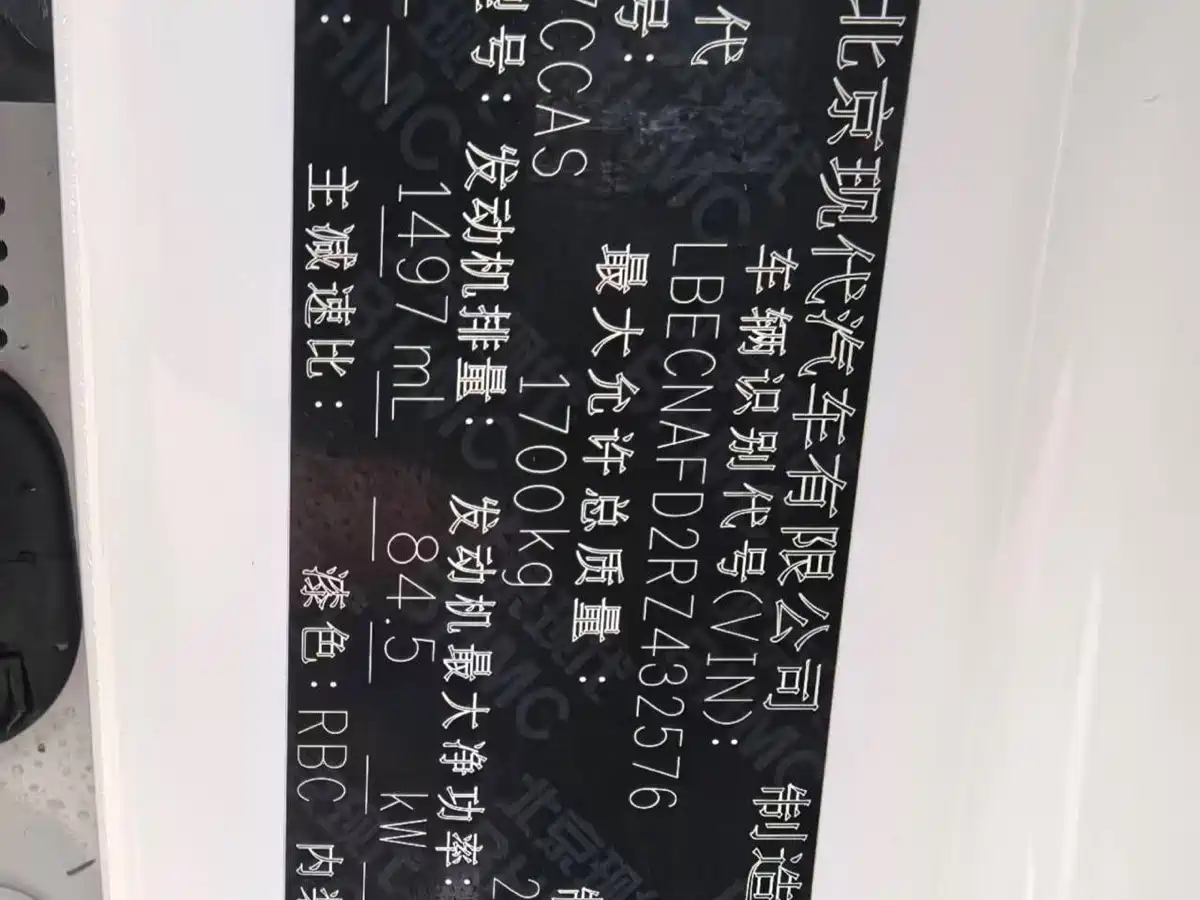 北京现代汽车有限公司 制造
代 车辆识别代号(VIN):
号: LBECNAFD2RZ432576
最大允许总质量:
7CCAS 1700kg 2
型号: 发动机排量: 发动机最大净功率:
1497 mL 84.5 kW
: 主减速比: 漆色: RBC 内